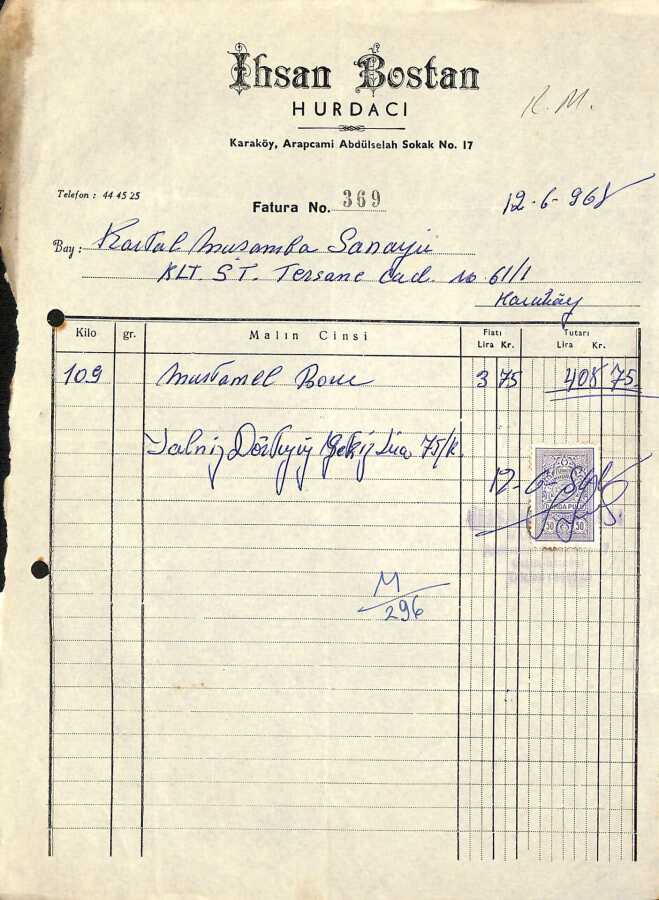 İhsan Bostan
HURDACI
K. M.
Karaköy, Arapcami Abdülselah Sokak No. 17
Telefon : 44 45 25
Fatura No. 369
12-6-968
Bay : Kartal Muşamba Sanayii
KLT. ŞT. Tersane Cad. no 61/1
Karaköy
Kilo gr. Malın Cinsi Fiatı Lira Kr. Tutarı Lira Kr.
109 Mustamel Boru 3 75 408 75
Yalnız Dörtyüz Sekiz Lira 75/K.
12-6-
DAMGA PULU
50 50
M/296